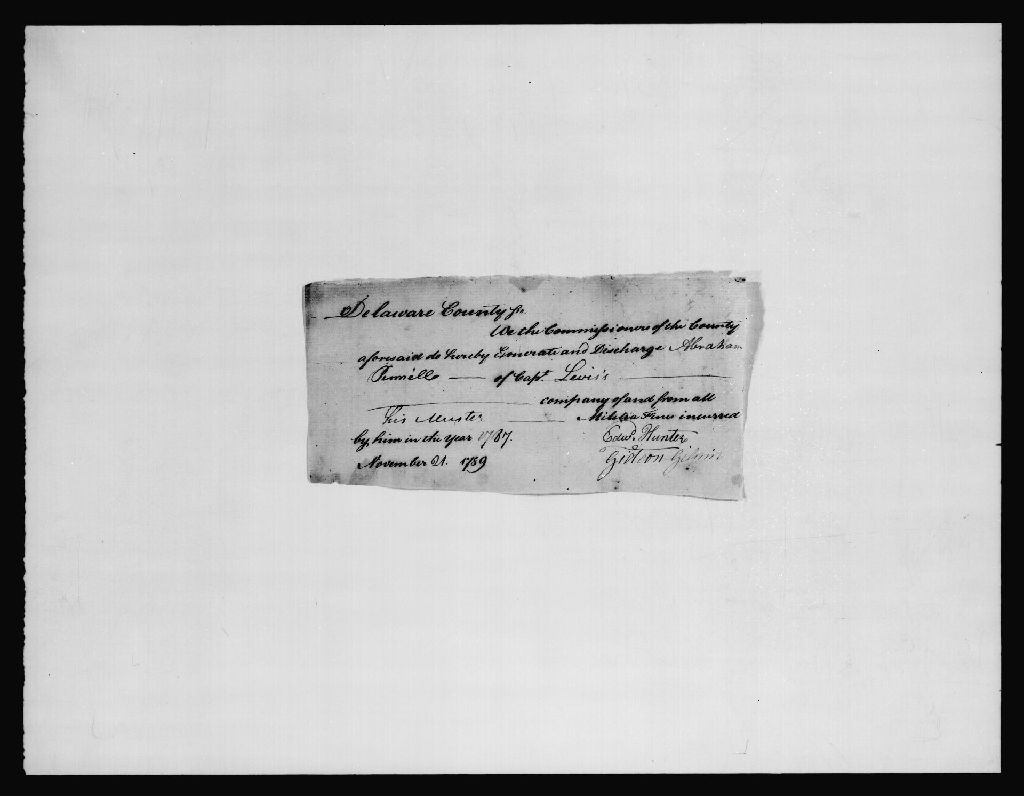 Delaware County ss.
We the Commissioners of the County
aforesaid do hereby Exonerate and Discharge Abraham
Pennell — of Capt. Lewis's —
— company of and from all
his Muster — Militia Fines incurred
by him in the year 1787.
Edwd. Hunter
November 21. 1789
Gideon